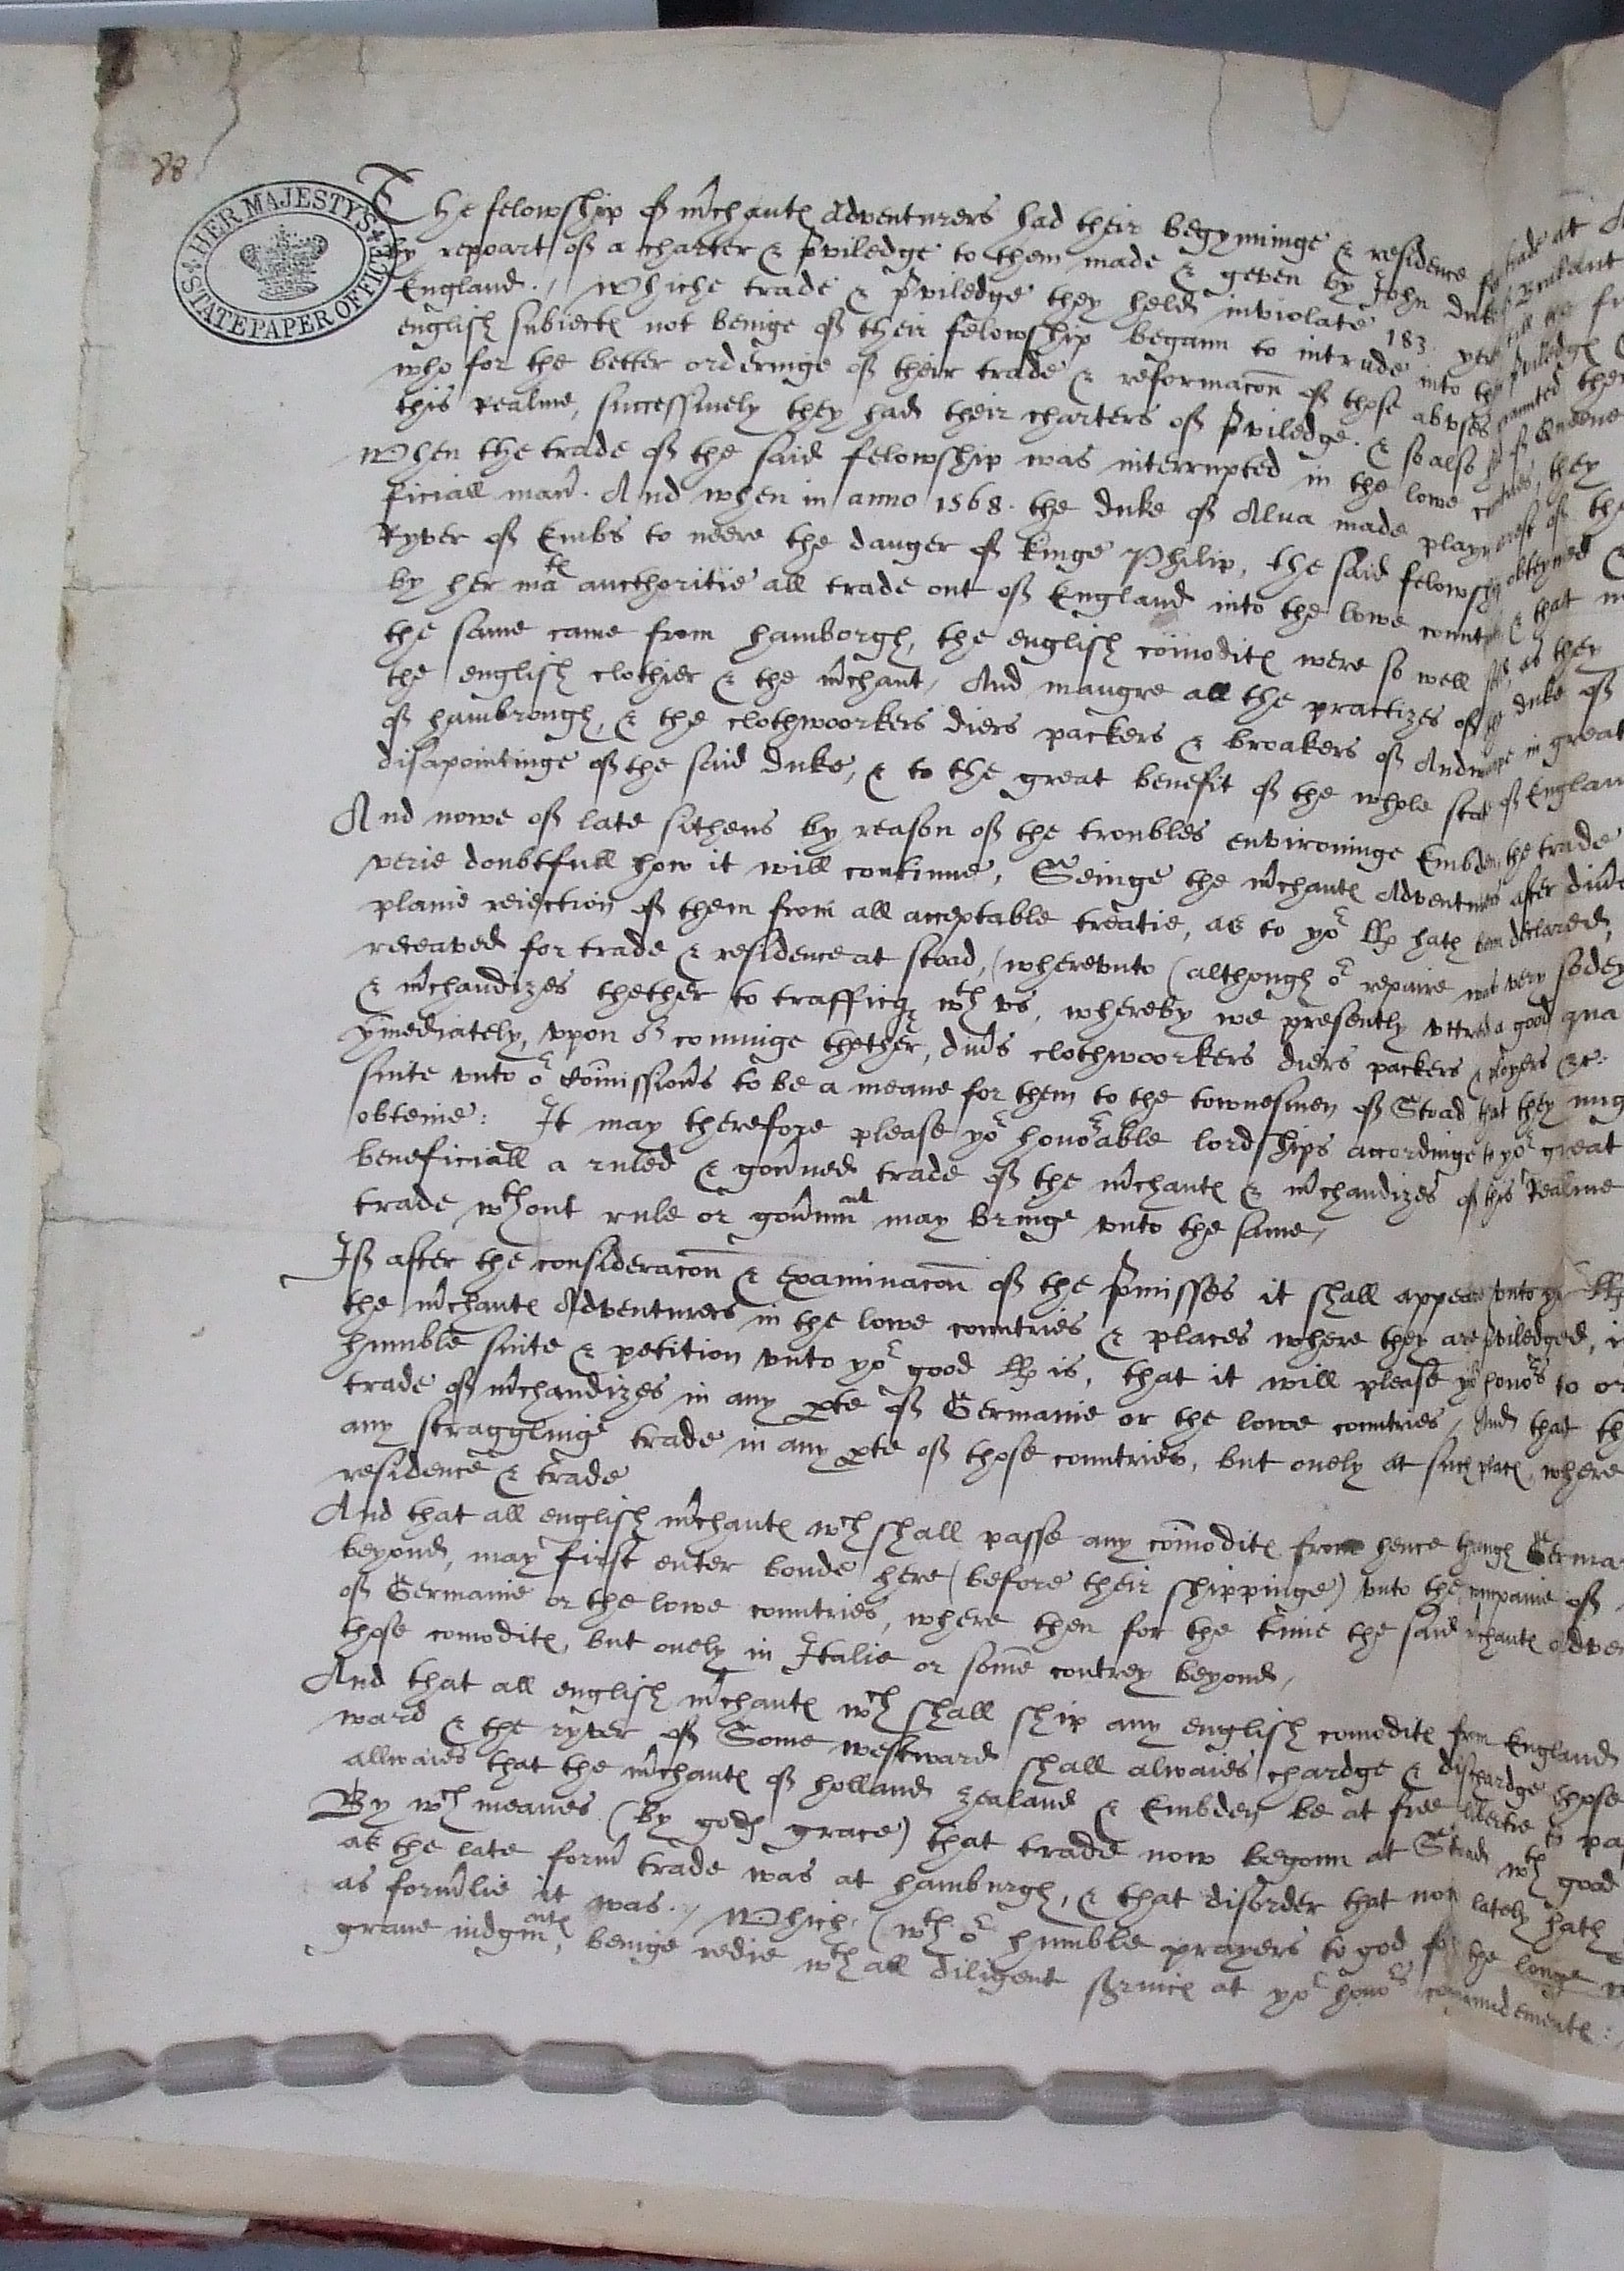 88
HER MAJESTYS STATE PAPER OFFICE
The felowship of m̃chantes Adventurers had their begynninge & residence trade at
by repoart of a charter & p̃viledge to them made & geven by John duke of Brabant
England ./ Whiche trade & p̃viledge they held inviolate 183 till the
english subiectes not beinge of their felowship begann to intrude into p̃viledges
who for the better orderinge of their trade & reformac̃on of those abuses graunted
this realme, successively they had their charters of p̃viledge. & so also of Queene
When the trade of the said felowship was interrupted in the lowe they
ficiall man̄. And when in anno 1568. the duke of Alva made of the
Ryver of Embs to neere the danger of kinge Philip, the said felowship obteyned
by her maᵗᵉˢ aucthoritie all trade out of England into the lowe & that
the same came from hamborgh, the english com̄odites were so well as they
the english clothier & the m̃chant, And maugre all the practizes of the duke of
of hambrough, & the clothwoorkers diers packers & broakers of Andwarpe in great
disapointinge of the said duke, & to the great benefit of the whole state of England
And nowe of late sithens by reason of the troubles environinge Embden, the trade
verie doubtfull how it will continue, Seinge the m̃chantes Adventurers after
plaine reiection of them from all acceptable treatie, as to yoʳ Lꝑ hath ben declared,
receaved for trade & residence at stoad, (wherevnto (although oʳ repaire was very
& m̃chandizes thether to traffiq wᵗʰ vs, whereby we presently vttred a good
ym̄ediately, vpon oʳ cominge thether, div̄s clothwoorkers diers packers &c:
suite vnto oʳ Com̄ission̄s to be a meane for them to the townesmen of Stoad that they
obteine: It may therefore please yoʳ honoʳable lordships accordinge to yoʳ great
beneficiall a ruled & gov̄ned trade of the m̃chantes & m̃chandizes of this Realme
trade wᵗʰout rule or gov̄nmᵉⁿᵗ may bringe vnto the same,
If after the considerac̃on & examinac̃on of the p̃misses it shall appeare vnto yoʳ Lꝑ
the m̃chantes Adventurers in the lowe countries & places where they are p̃viledged,
humble suite & petition vnto yoʳ good Lꝑ is, that it will please yoʳ honoʳs to
trade of m̃chandizes in any ꝑte of Germanie or the lowe countries, And that
any stragglinge trade in any ꝑte of those countries, but onely at such places, where
residence & trade
And that all english m̃chantes wᶜʰ shall passe any com̄odites from hence through
beyond, may first enter bonde here (before their shippinge) vnto the companie of
of Germanie or the lowe countries, where then for the time the said m̃chantes
those comodites, but onely in Italie or some contrey beyond,
And that all english m̃chantes wᶜʰ shall ship any english comodites from England
ward & the ryver of Some westward shall alwaies chardge & dischardge those
allwaies that the m̃chantes of holland zealand & Embden be at free libertie to
By wᶜʰ meanes (by gods grace) that trade now begonn at Stoad wᵗʰ good
as the late form̃ trade was at hamburgh, & that disorder that now lately hath
as form̃lie it was ./ Which (wᵗʰ oʳ humble prayers to god for the longe
grave iudgmᵉⁿᵗᵉˢ, beinge redie wᵗʰ all diligent service at yoʳ honoʳs com̄andementes: